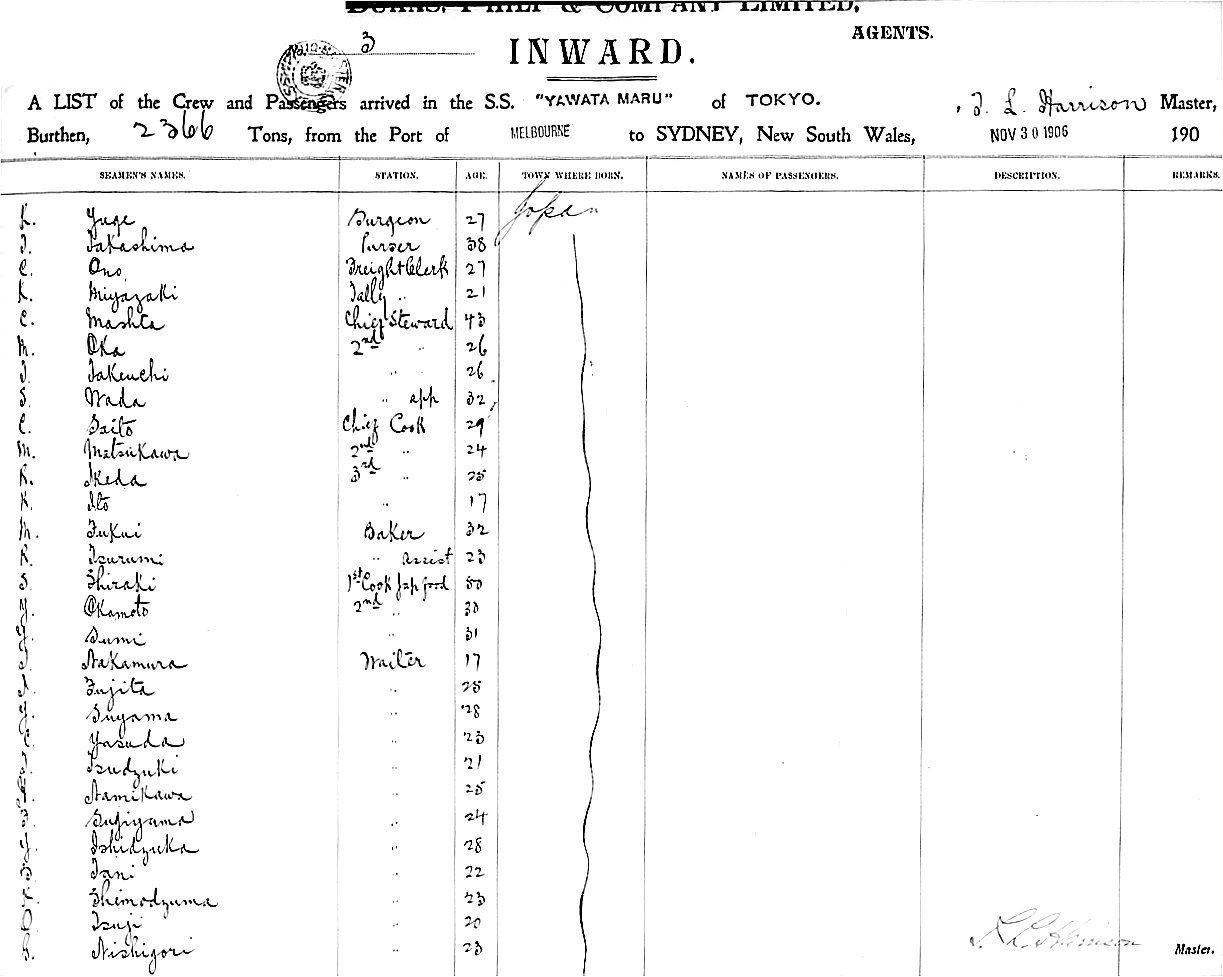 BURNS, PHILP & COMPANY LIMITED,
AGENTS.
3
INWARD.
A LIST of the Crew and Passengers arrived in the S.S. "YAWATA MARU" of TOKYO. L. Harrison Master,
Burthen, 2366 Tons, from the Port of MELBOURNE to SYDNEY, New South Wales, NOV 30 1906 190
SEAMEN'S NAMES. STATION. AGE. TOWN WHERE BORN. NAMES OF PASSENGERS. DESCRIPTION. REMARKS.
K. Yuge Surgeon 27 Japan
T. Takashima Purser 38
C. Ono Freight Clerk 27
K. Miyazaki Tally " 21
C. Mashta Chief Steward 43
M. Oka 2nd " 26
J. Takeuchi " 26
S. Wada " app 32
C. Saito Chief Cook 29
M. Matsukawa 2nd " 24
R. Ikeda 3rd " 25
K. Ito " 17
M. Fukui Baker 32
R. Tsurumi " Assist 23
S. Shiraki 1st Cook Jap food 50
Y. Okamoto 2nd " 30
Sumi " 31
Nakamura Waiter 17
Fujita " 25
Suyama " 28
Yasuda " 23
Tsudzuki " 21
Namikawa " 25
Sugiyama " 24
Ishidzuka " 28
Tani " 22
Shimodzuma " 23
Tsuji " 20
S. Nishigori " 23
L. Harrison Master.